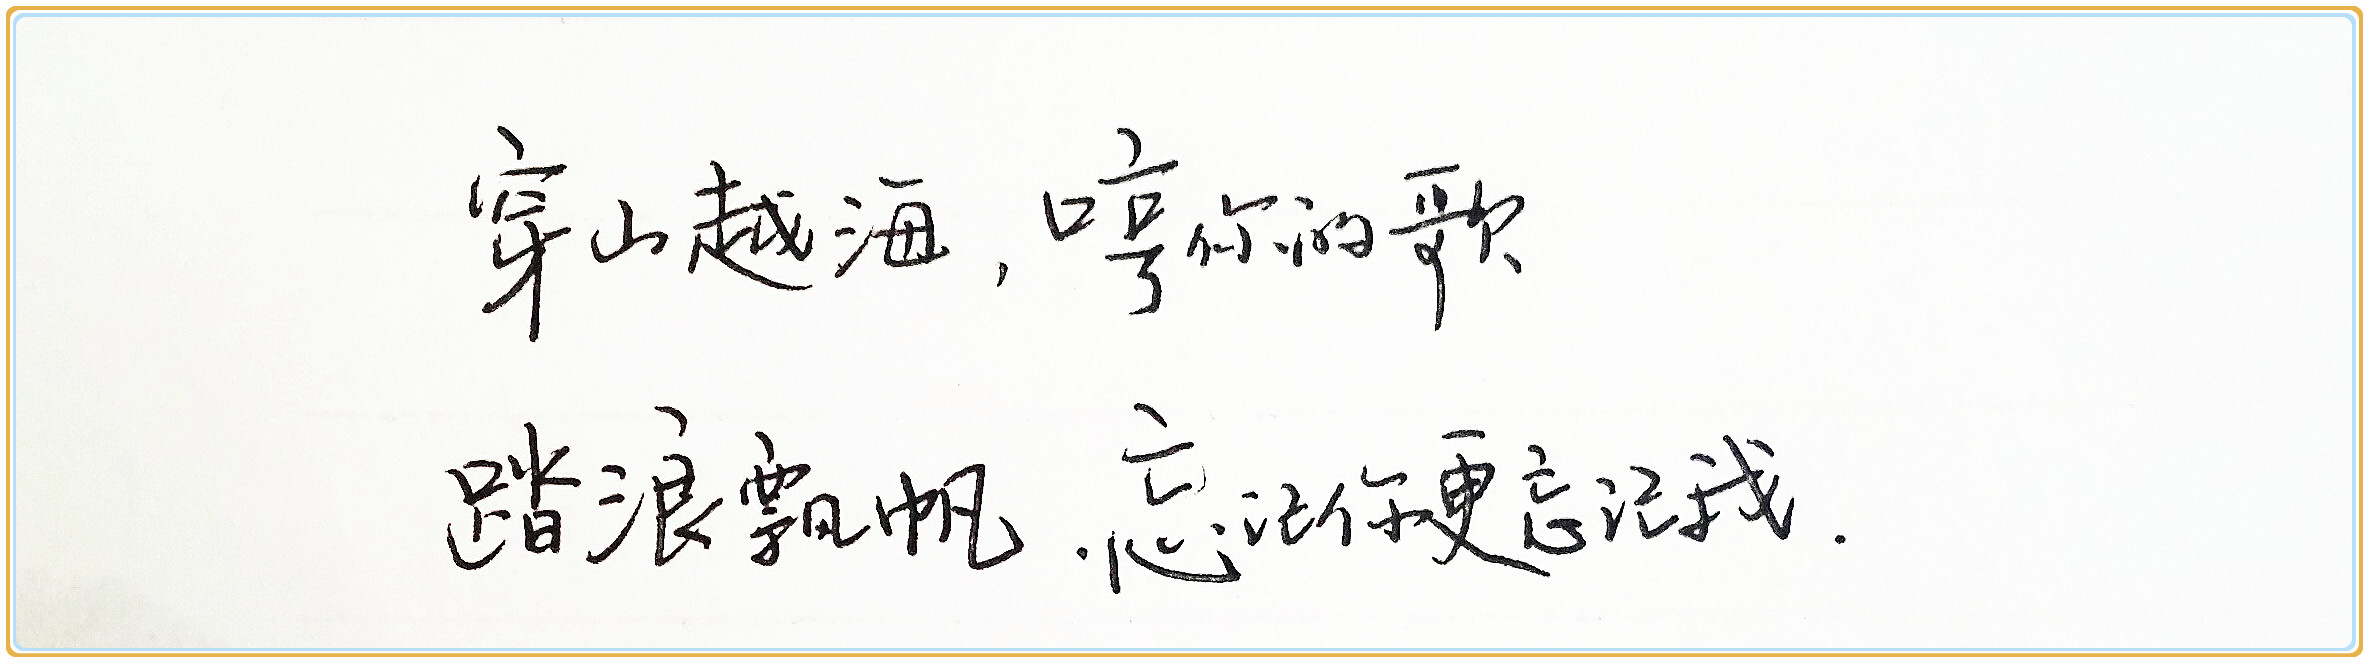 穿山越海，哼你的歌
踏浪飘帆.忘记你更忘记我.